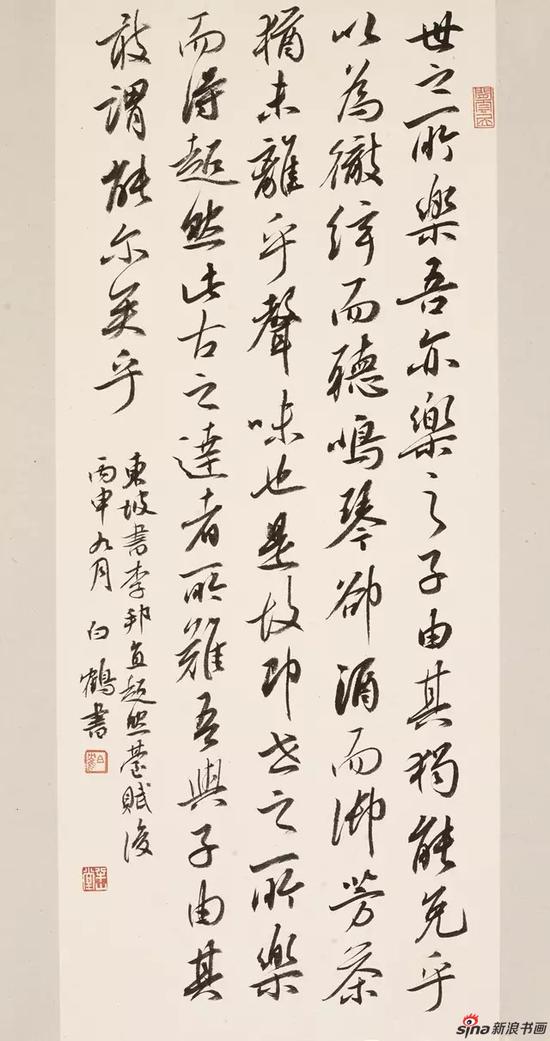 世之所樂吾亦樂之子由其獨能免乎
以為徹弦而聽鳴琴卻酒而御芳茶
猶未離乎聲味也是故即世之所樂
而得超然此古之達者所難吾與子由其
敢謂能尔矣乎
東坡書李邦直超然臺賦後
丙申九月 白鶴書
sina新浪书画